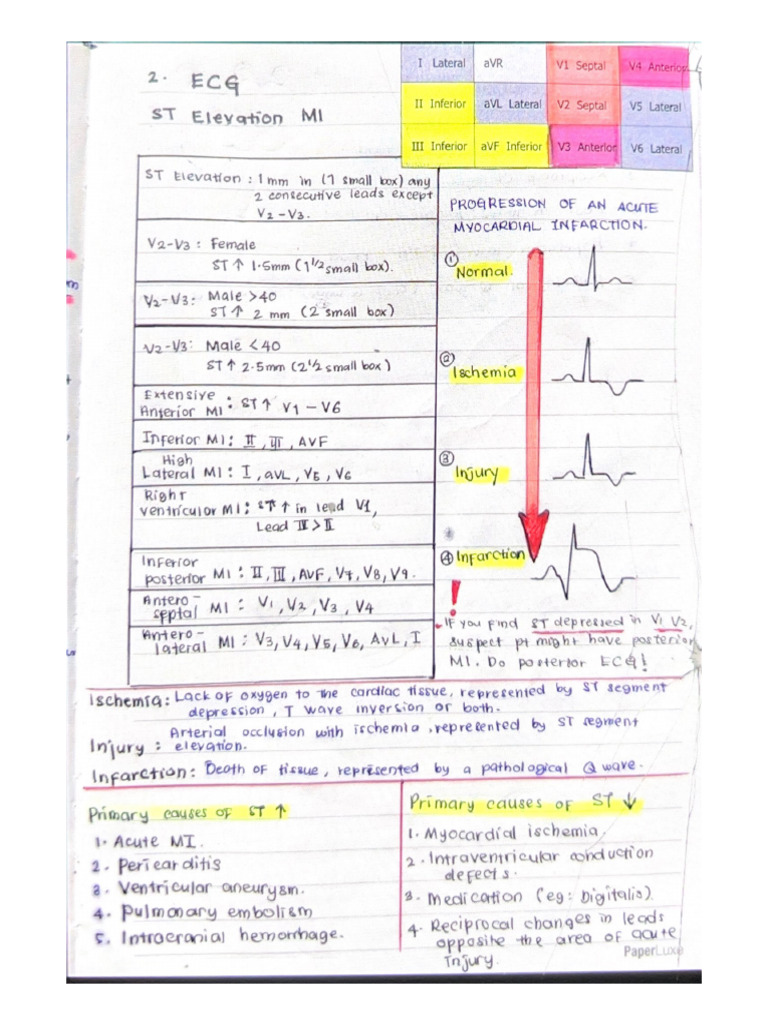 2. ECG
ST Elevation MI
I Lateral
aVR
V1 Septal
V4 Anterior
II Inferior
aVL Lateral
V2 Septal
V5 Lateral
III Inferior
aVF Inferior
V3 Anterior
V6 Lateral
ST Elevation : 1 mm in (1 small box) any
2 consecutive leads except
V2 – V3.
V2–V3 : Female
ST ↑ 1.5mm (1 1/2 small box).
V2–V3 : Male >40
ST ↑ 2 mm (2 small box)
V2–V3: Male <40
ST ↑ 2.5mm (2 1/2 small box)
Extensive
Anterior MI : ST ↑ V1 – V6
Inferior MI : II, III, AVF
High
Lateral MI : I, aVL, V5, V6
Right
ventricular MI : ST ↑ in lead V1,
Lead III > II
Inferior
posterior MI : II, III, AVF, V7, V8, V9.
Antero –
septal MI : V1, V2, V3, V4
Antero –
lateral MI : V3, V4, V5, V6, AVL, I
PROGRESSION OF AN ACUTE
MYOCARDIAL INFARCTION.
① Normal.
② Ischemia
③ Injury
④ Infarction
!
If you find ST depressed in V1 V2,
suspect pt might have posterior
MI. Do posterior ECG!
Ischemia: Lack of oxygen to the cardiac tissue, represented by ST segment
depression, T wave inversion or both.
Injury : Arterial occlusion with ischemia, represented by ST segment
elevation.
Infarction: Death of tissue, represented by a pathological Q wave.
Primary causes of ST ↑
1. Acute MI.
2. Periearditis
3. Ventricular aneurysm.
4. Pulmonary embolism
5. Intracranial hemorrhage.
Primary causes of ST ↓
1. Myocardial ischemia
2. Intraventricular conduction
defects.
3. Medication (eg: Digitalis).
4. Reciprocal changes in leads
opposite the area of acute
Injury.
PaperLuxe